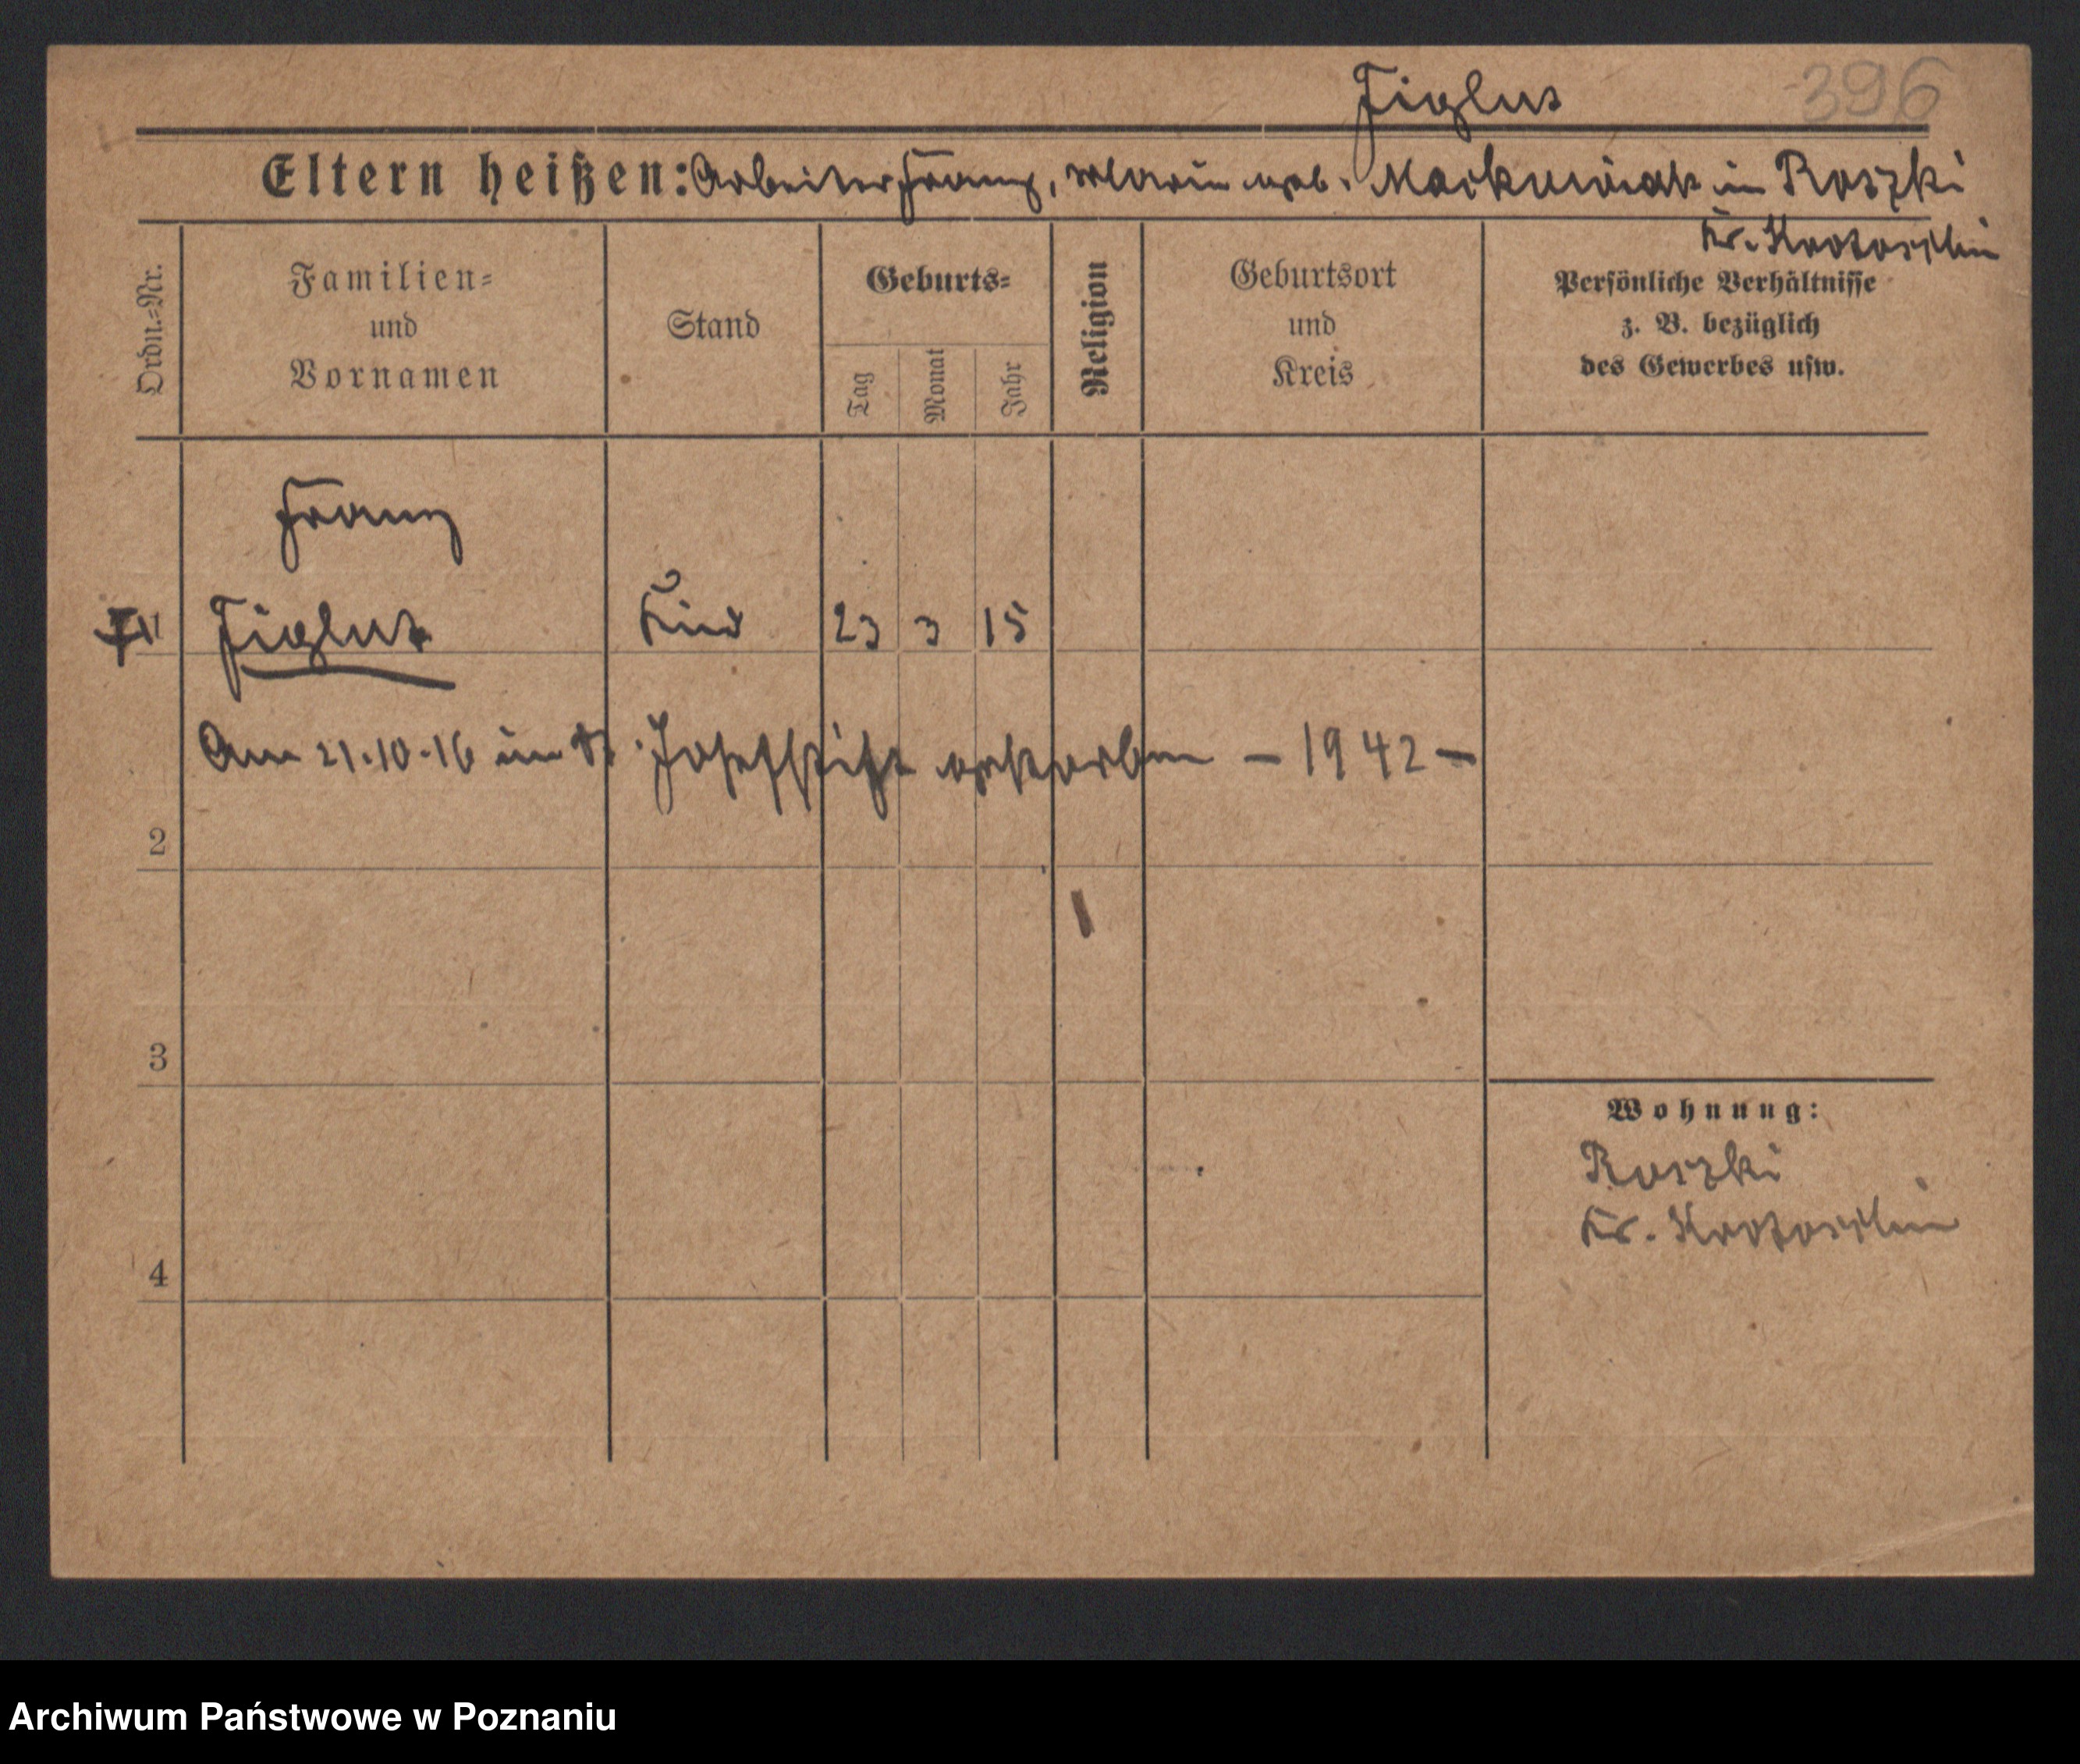 Figlus 396
Eltern heißen: Arbeiter Franz, Marie geb. Maikowiak in Roszki
Kr. Krotoschin
Ordn.=Nr.
Familien=
und
Vornamen
Stand
Geburts=
Tag
Monat
Jahr
Religion
Geburtsort
und
Kreis
Persönliche Verhältnisse
z. B. bezüglich
des Gewerbes usw.
Franz
1 Figlus Kind 23 3 15
Am 21.10.16 im St. Josefstift gestorben – 1942 –
2
3
Wohnung:
Roszki
Kr. Krotoschin
4
Archiwum Państwowe w Poznaniu